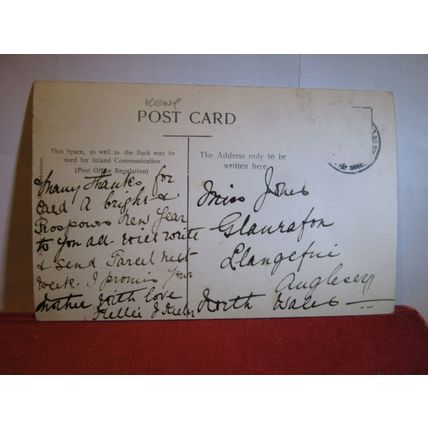 KENT
POST CARD
This Space, as well as the Back may be
used for Inland Communication.
(Post Office Regulation)
The Address only to be
written here.
Many thanks for
Card A bright &
Prosperous New Year
to you all will write
& send Parcel next
week. I promis your
Mother with love
Nellie &
Miss Jones
Glanrafon
Llangefni
Anglesey
North Wales